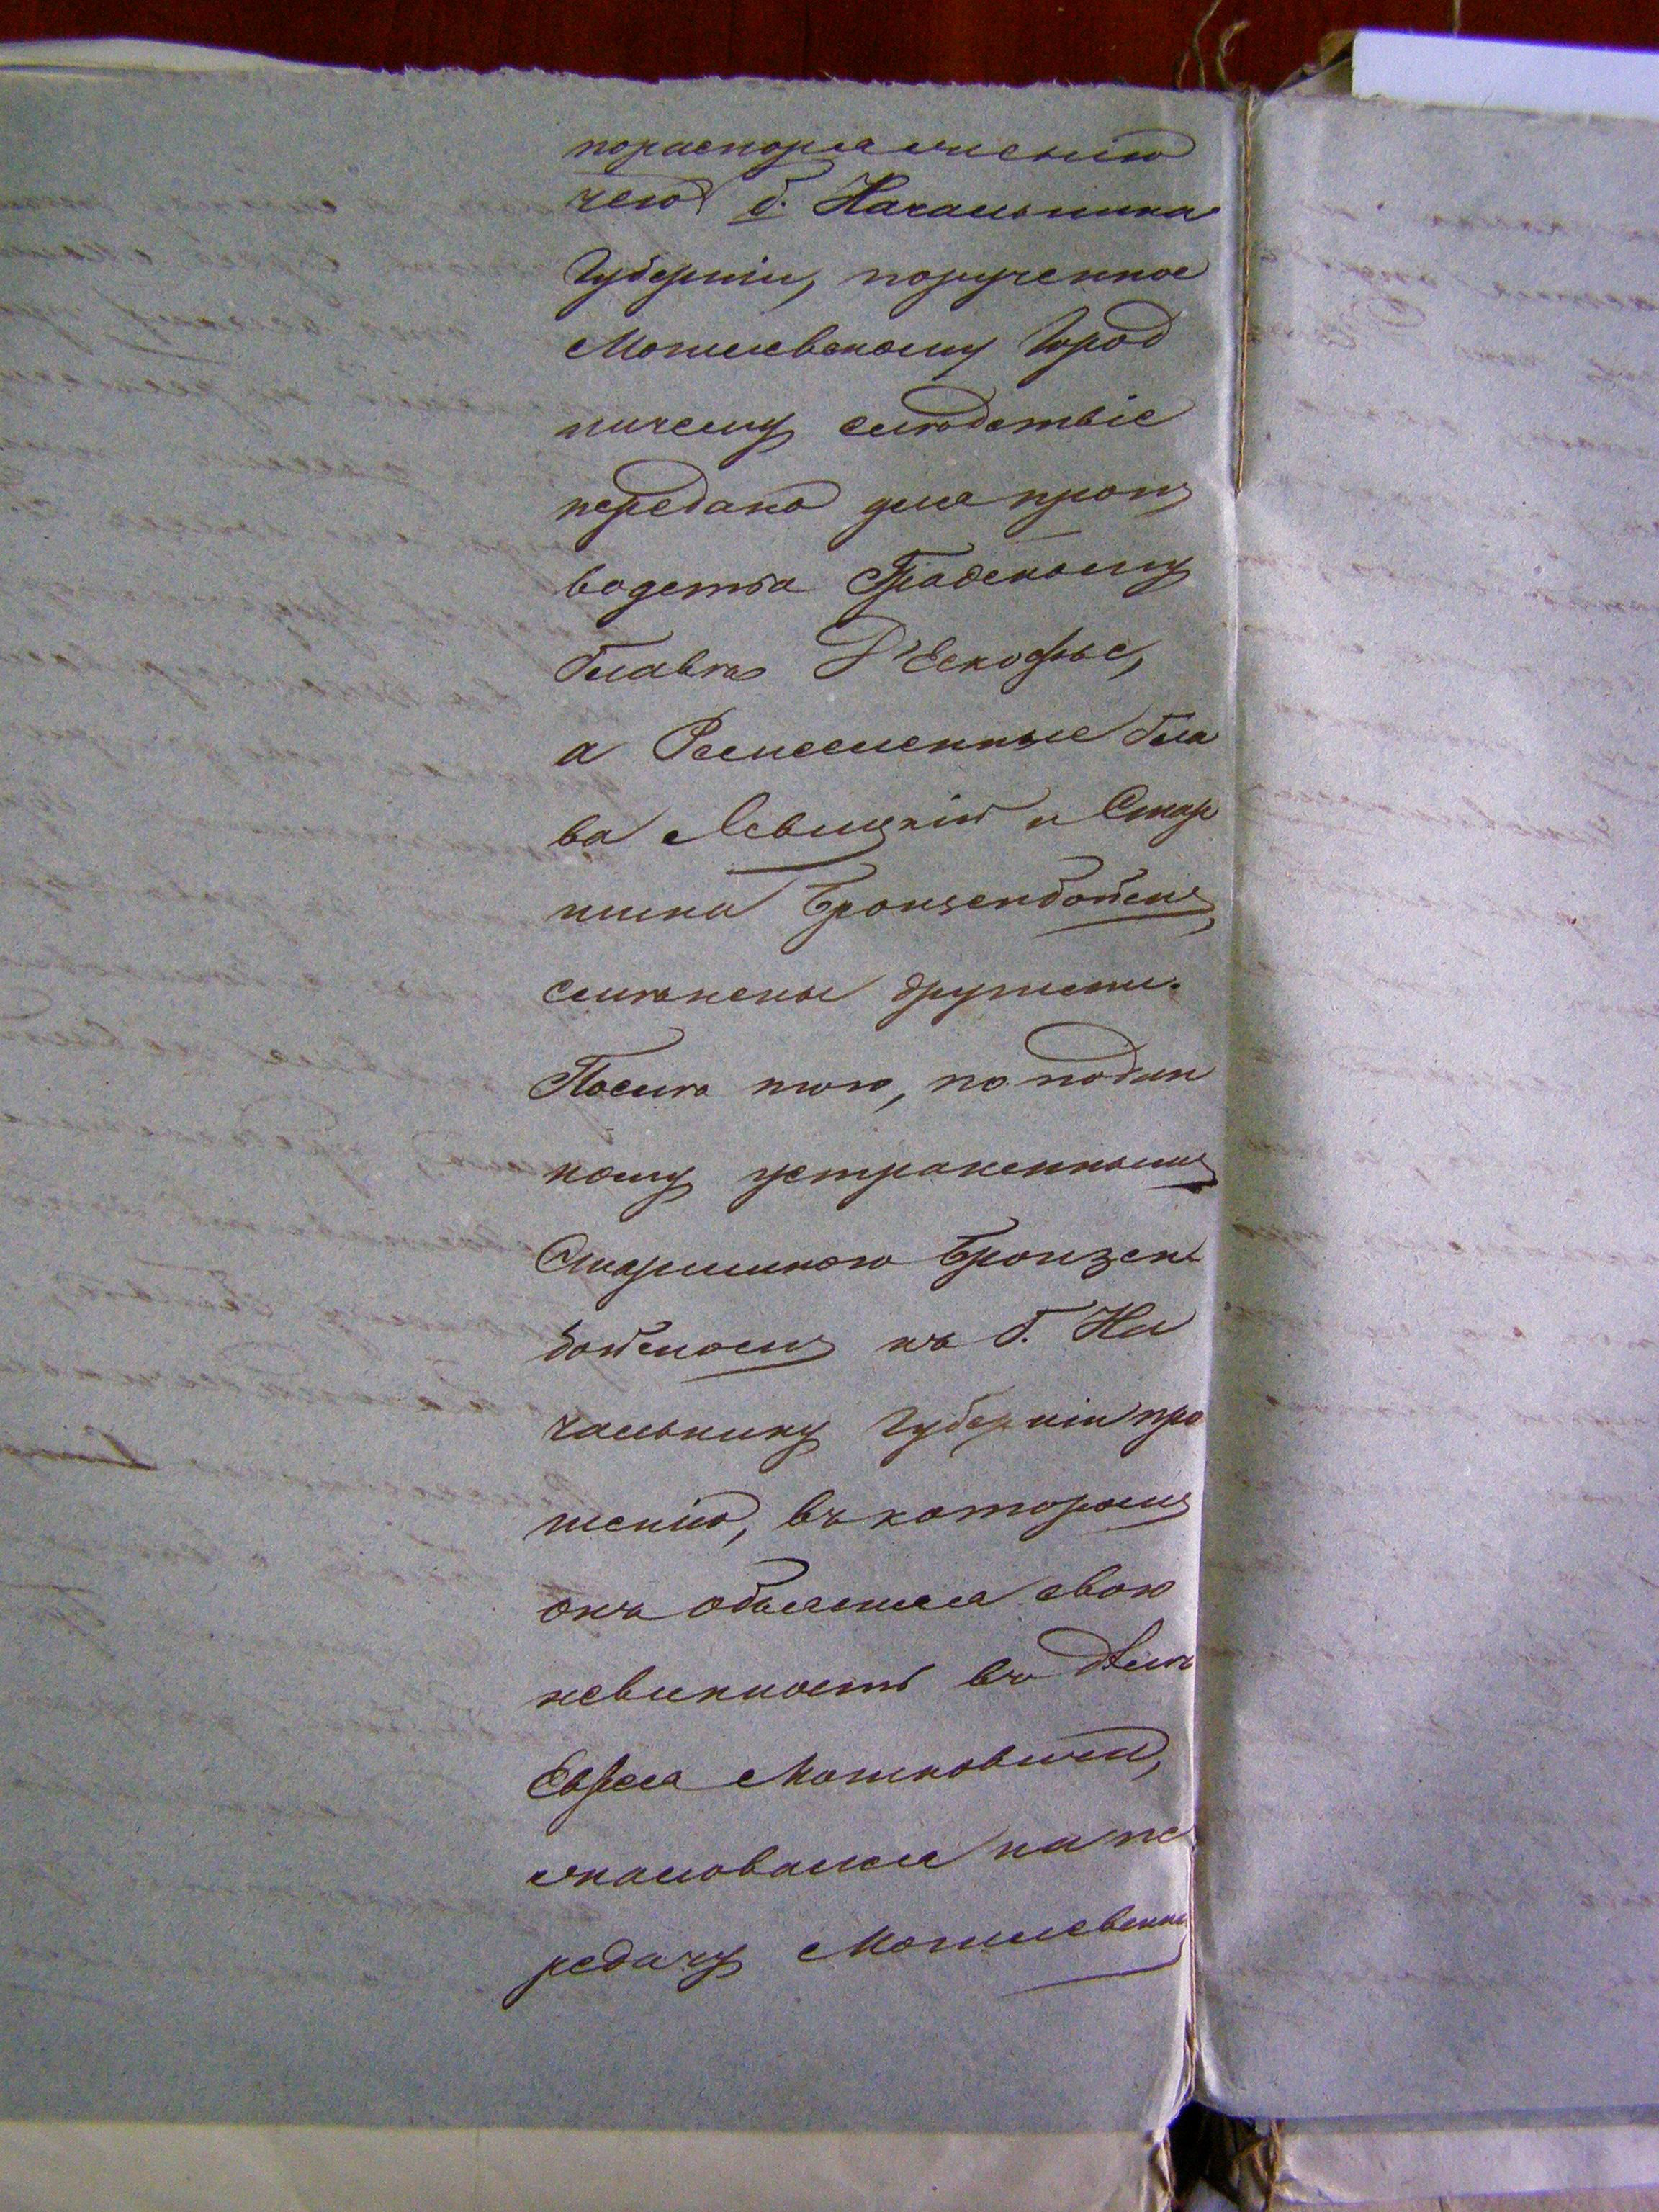 по распоряженію
чего Г. Начальника
Губерніи, порученное
Могилевскому Город
ничему слѣдствіе
передано для произ
водства Градскому
Главѣ Д'Ескофье,
а Ремесленные Гла
ва Левицкій и Стар
шина Бронзенбойсмъ,
смѣнены другими.
Послѣ того, по подан
ному устраненнымъ
Старшиною Бронзен
бойсмомъ къ Г. На
чальнику Губерніи про
шенію, въ которомъ
онъ объясняя свою
невинность въ дѣлѣ
Еврея Мошковича,
жаловался на пе
редачу Могилевским